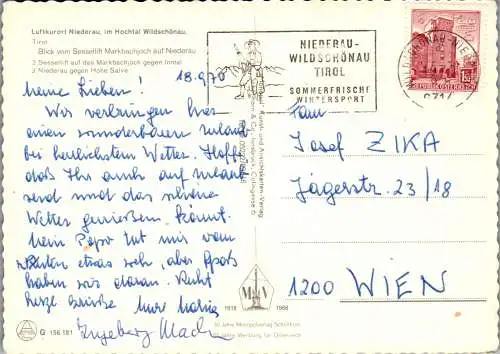 Luftkurort Niederau, im Hochtal Wildschönau,
Tirol
Blick vom Sessellift Markbachjoch auf Niederau
2 Sessellift auf das Markbachjoch gegen Inntal
3 Niederau gegen Hohe Salve
18.9.70
Meine Lieben!
Wir verbringen hier
einen sonderbaren Urlaub
bei herrlichstem Wetter. Hoffe
daß Ihr auch auf Urlaub
seid und das schöne
Wetter genießen könnt.
Mein Popo tut mir vom
Reiten etwas weh, aber Spaß
haben wir daran. Recht
herzl. Grüße
Ingeborg
G 156 181
NIEDERAU-
WILDSCHÖNAU
TIROL
SOMMERFRISCHE
WINTERSPORT
WILDSCHÖNAU
REPUBLIK ÖSTERREICH
1918
1968
50 Jahre
50 Jahre Werbung für Österreich
Fam
Josef ZIKA
Jägerstr. 23/18
1200 WIEN